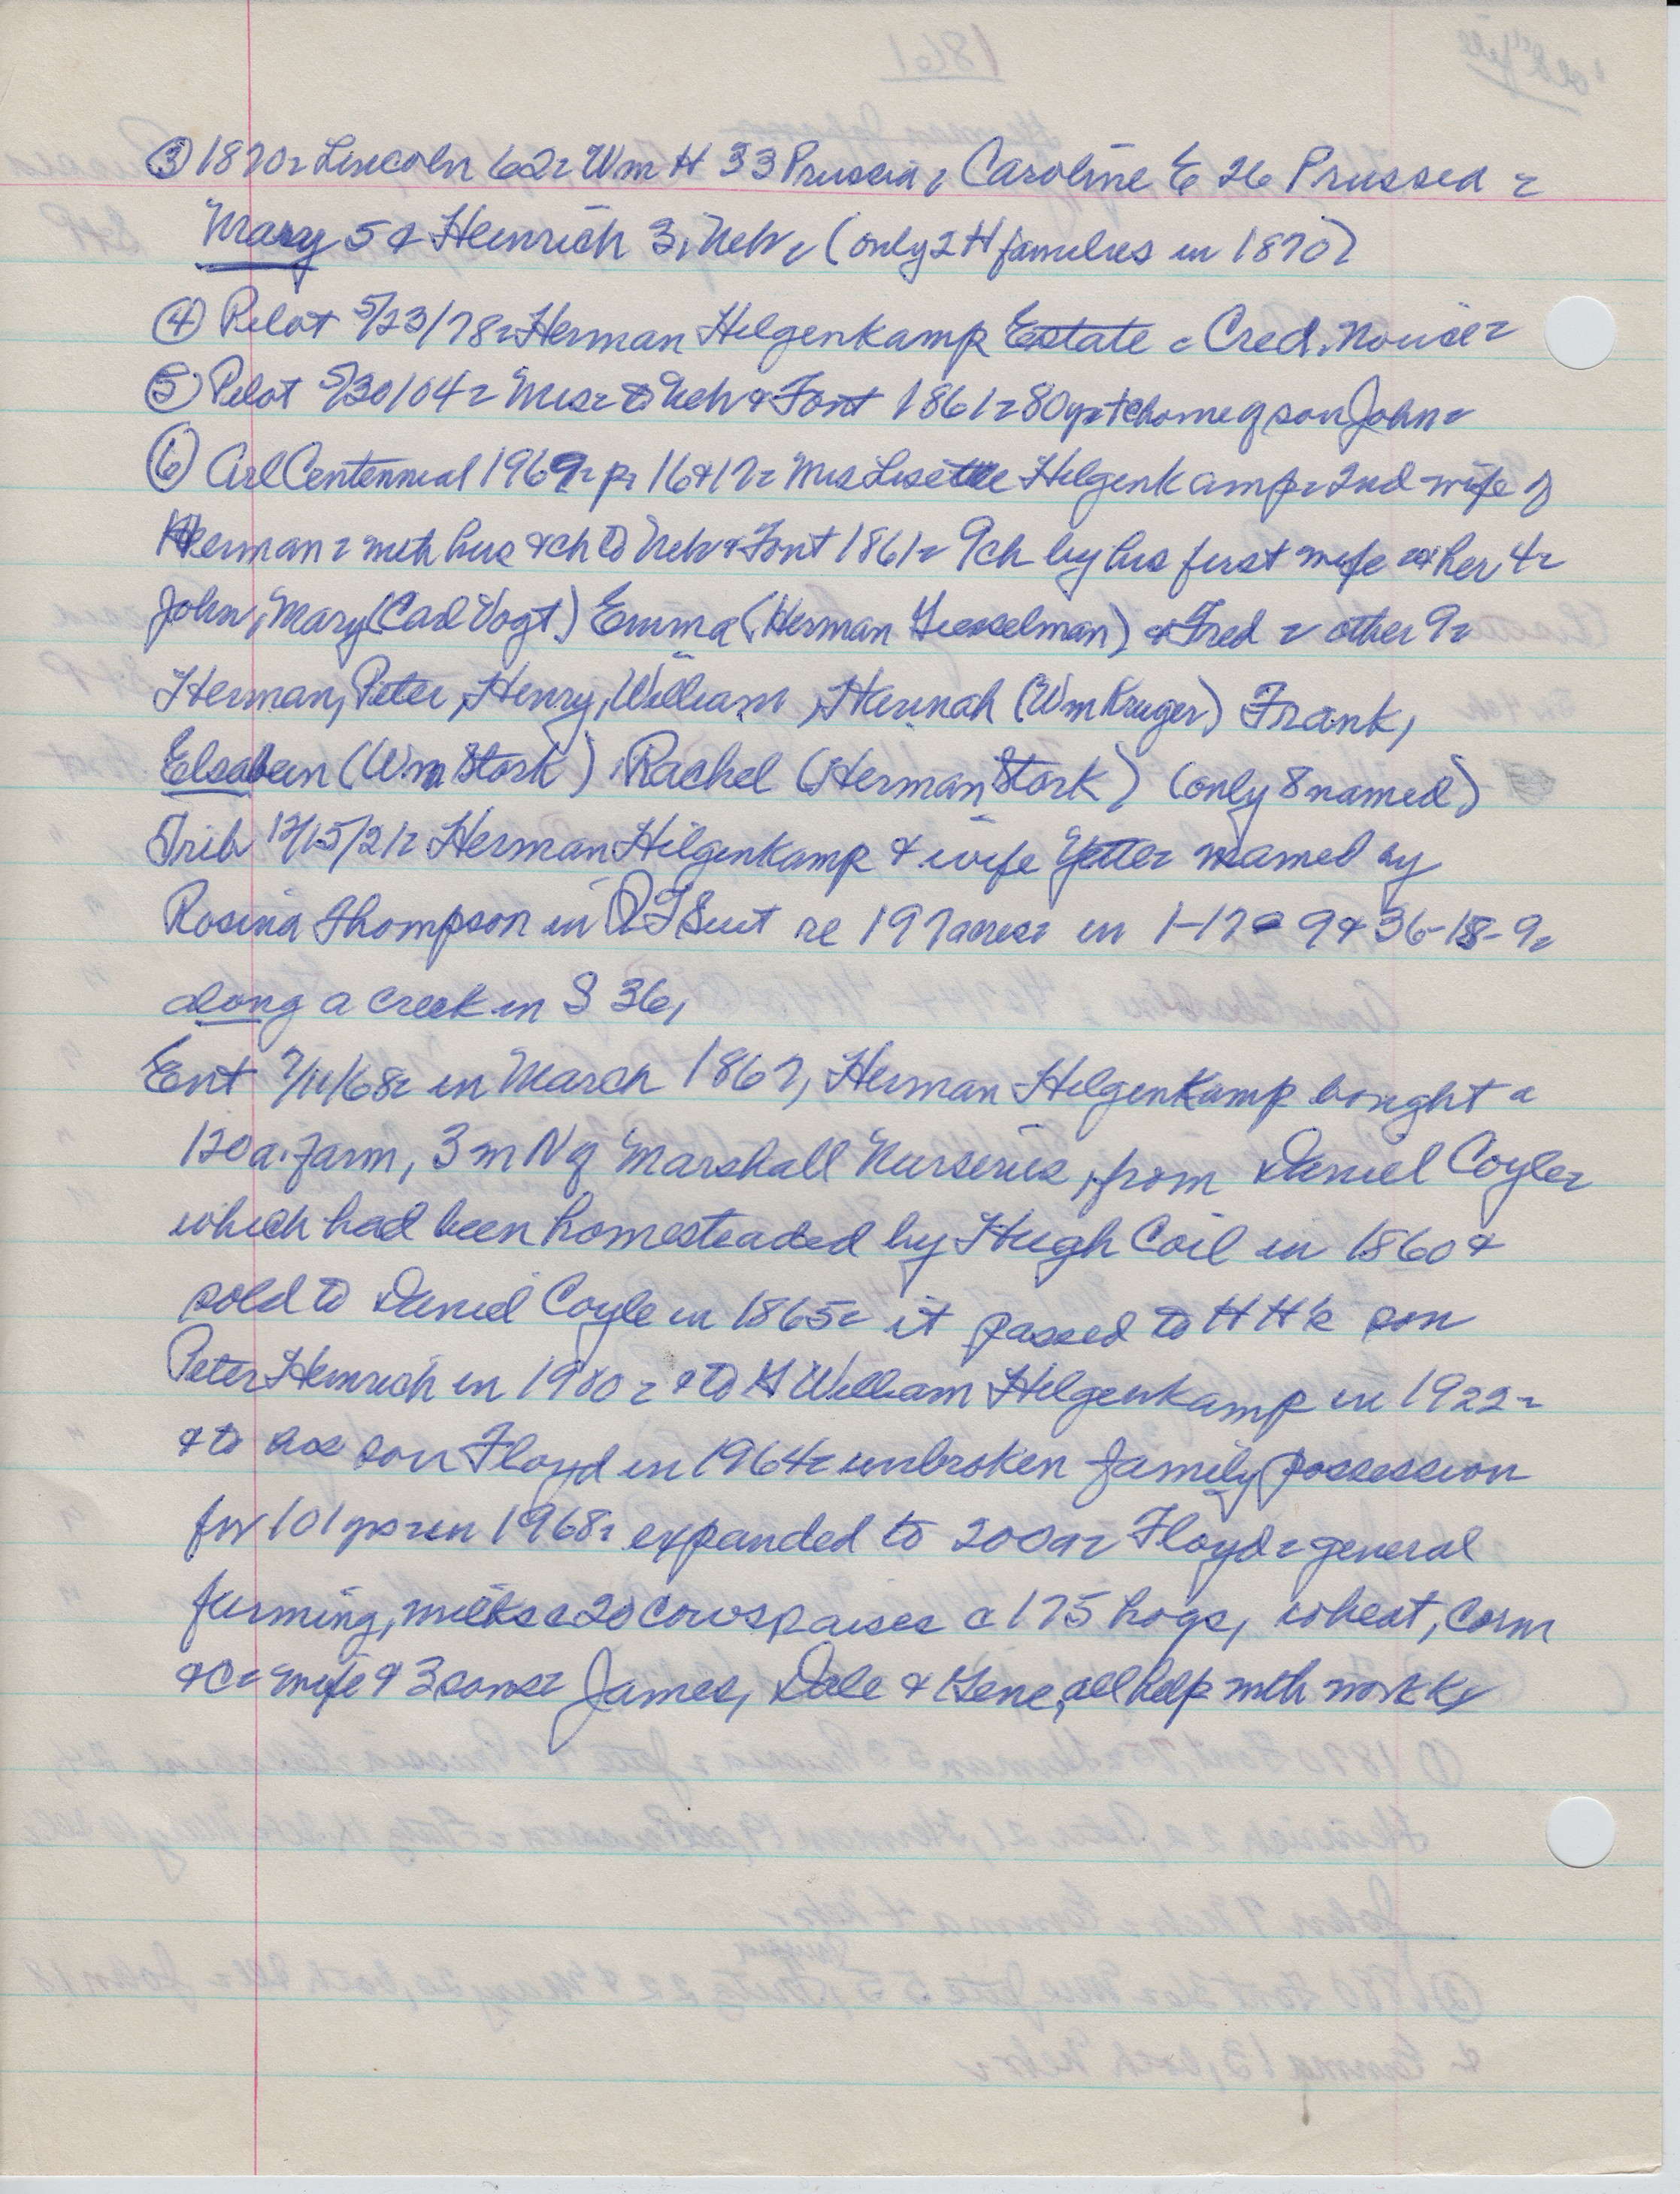 ③ 1870 Lincoln 62 Wm H 33 Prussia, Caroline E 26 Prussia
Mary 5 & Heinrich 3, Neb, (only 2 H families in 1870)
④ Pilot 5/23/78 Herman Hilgenkamp Estate - Cred. Notice
⑤ Pilot 5/30/04 Mrs to Neb & Font 1861 80 yrs home of son John
⑥ Arl Centennial 1969 p 16 & 17 Mrs Lisette Hilgenkamp 2nd wife of
Herman with hus & ch to Neb & Font 1861 9 ch by his first wife & her 4
John, Mary (Carl Vogt) Emma (Herman Giesselman) & Fred other 9
Herman, Peter, Henry, William, Hannah (Wm Kruger) Frank,
Elsabein (Wm Stork), Rachel (Herman Stork) (only 8 named)
Trib 12/15/21 Herman Hilgenkamp & wife Yetter named by
Rosina Thompson in QT Suit re 197 acres in 1-17-9 & 36-18-9
along a creek in S 36,
Ent 7/11/68 in March 1867, Herman Hilgenkamp bought a
120 a. farm, 3 m N of Marshall Nurseries, from Daniel Coyle
which had been homesteaded by Hugh Coil in 1860 &
sold to Daniel Coyle in 1865 it passed to HH's son
Peter Heinrich in 1980 & to William Hilgenkamp in 1922
& to his son Floyd in 1964 unbroken family possession
for 101 yrs in 1968 expanded to 200 a Floyd general
farming, milks c 20 cows raises c 175 hogs, wheat, corn
&c wife & 3 sons James, Dale & Gene, all help with work